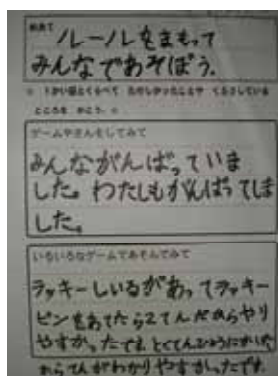 めあて
ルールをまもって
みんなであそぼう。
ゲームやさんをしてみて
みんながんばっていま
した。わたしもがんばってしま
した。
いろいろなゲームであそんでみて
ラッキーしいるがあってラッキー
ピンをあてたら2てんだからやり
やすかったです。とくてんひょうにかいた
からてんがわかりやすかったです。